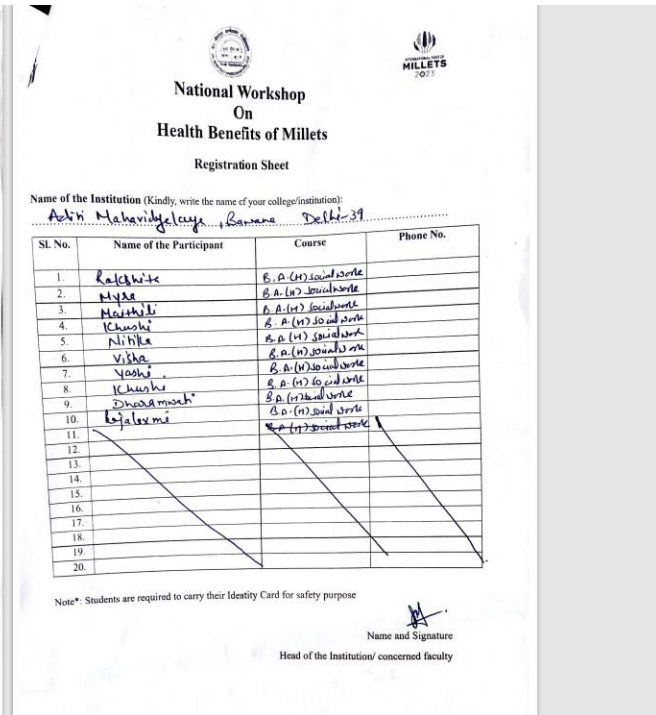 INTERNATIONAL YEAR OF
MILLETS
2023
National Workshop
On
Health Benefits of Millets
Registration Sheet
Name of the Institution (Kindly, write the name of your college/institution):
Aditi Mahavidyalaya, Bawana Delhi-39
Sl. No. Name of the Participant Course Phone No.
1. Rakshita B.A.(H) social work
2. Myra B.A.(H) social work
3. Maithili B.A.(H) social work
4. Khushi B.A.(H) social work
5. Nitika B.A.(H) social work
6. Visha B.A.(H) social work
7. Yashi B.A.(H) social work
8. Khushi B.A.(H) social work
9. Dharamwati B.A.(H) social work
10. Rajalaxmi B.A.(H) social work
11. B.A.(H) social work
12.
13.
14.
15.
16.
17.
18.
19.
20.
Note*: Students are required to carry their Identity Card for safety purpose
Name and Signature
Head of the Institution/ concerned faculty